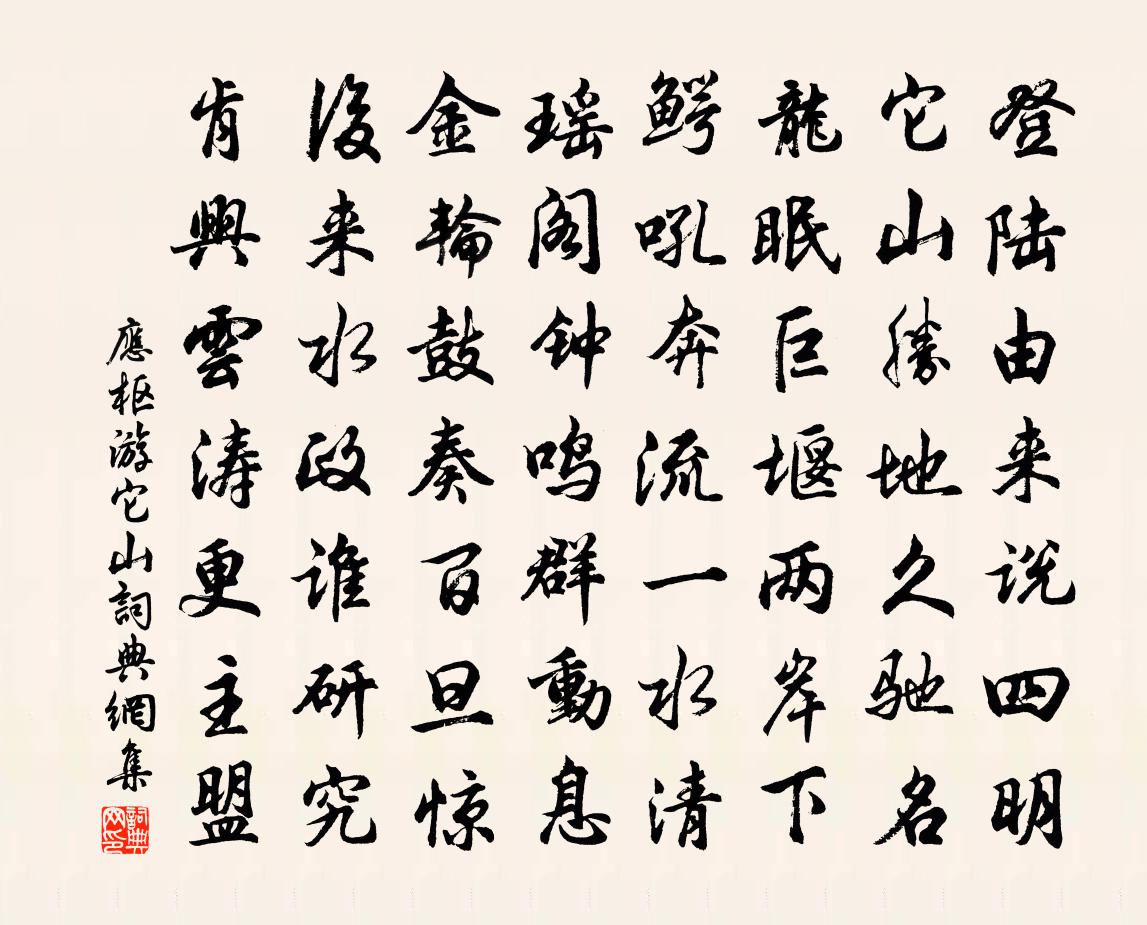 登陆由来说四明
它山勝地久驰名
龍眠巨堰两岸下
鳄吼奔流一水清
瑶阁钟鸣群動息
金輪鼓奏百旦惊
後来水政谁研究
肯興雲涛更主盟
應枢游它山詞典網集
詞典网印